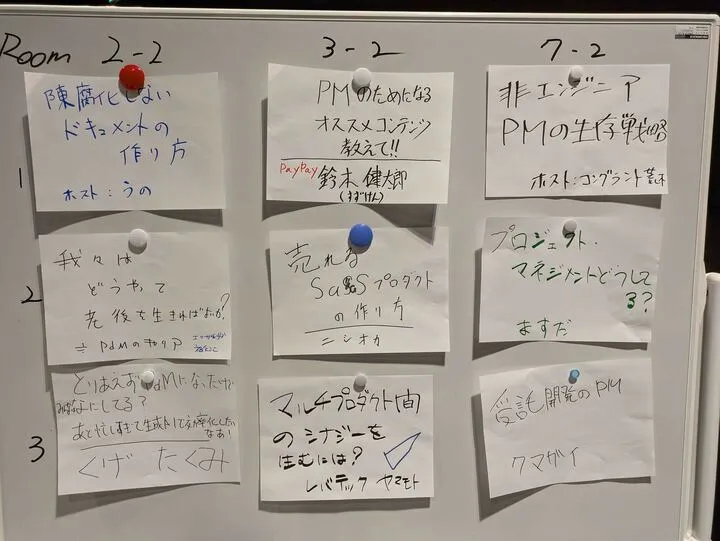 Room 2-2 3-2 7-2
1
陳腐化しない
ドキュメントの
作り方
ホスト:うの
PMのためになる
オススメコンテンツ
教えて!!
PayPay 鈴木 健太郎
(すずけん)
非エンジニア
PMの生存戦略
ホスト:コングラント 荒木
2
我々は
どうやって
老後を生きればよいか?
≒ PdMのキャリア
売れる
SaaSプロダクト
の作り方
ニシオカ
プロジェクト・
マネジメントどうして
る?
ますだ
3
とりあえずPdMになったけど
みんな何してる?
あと忙しすぎて生成AIで効率化したい
なあ!
くげ たくみ
マルチプロダクト間
のシナジーを
生むには?
レバテック ヤマモト
受託開発のPM
クマガイ